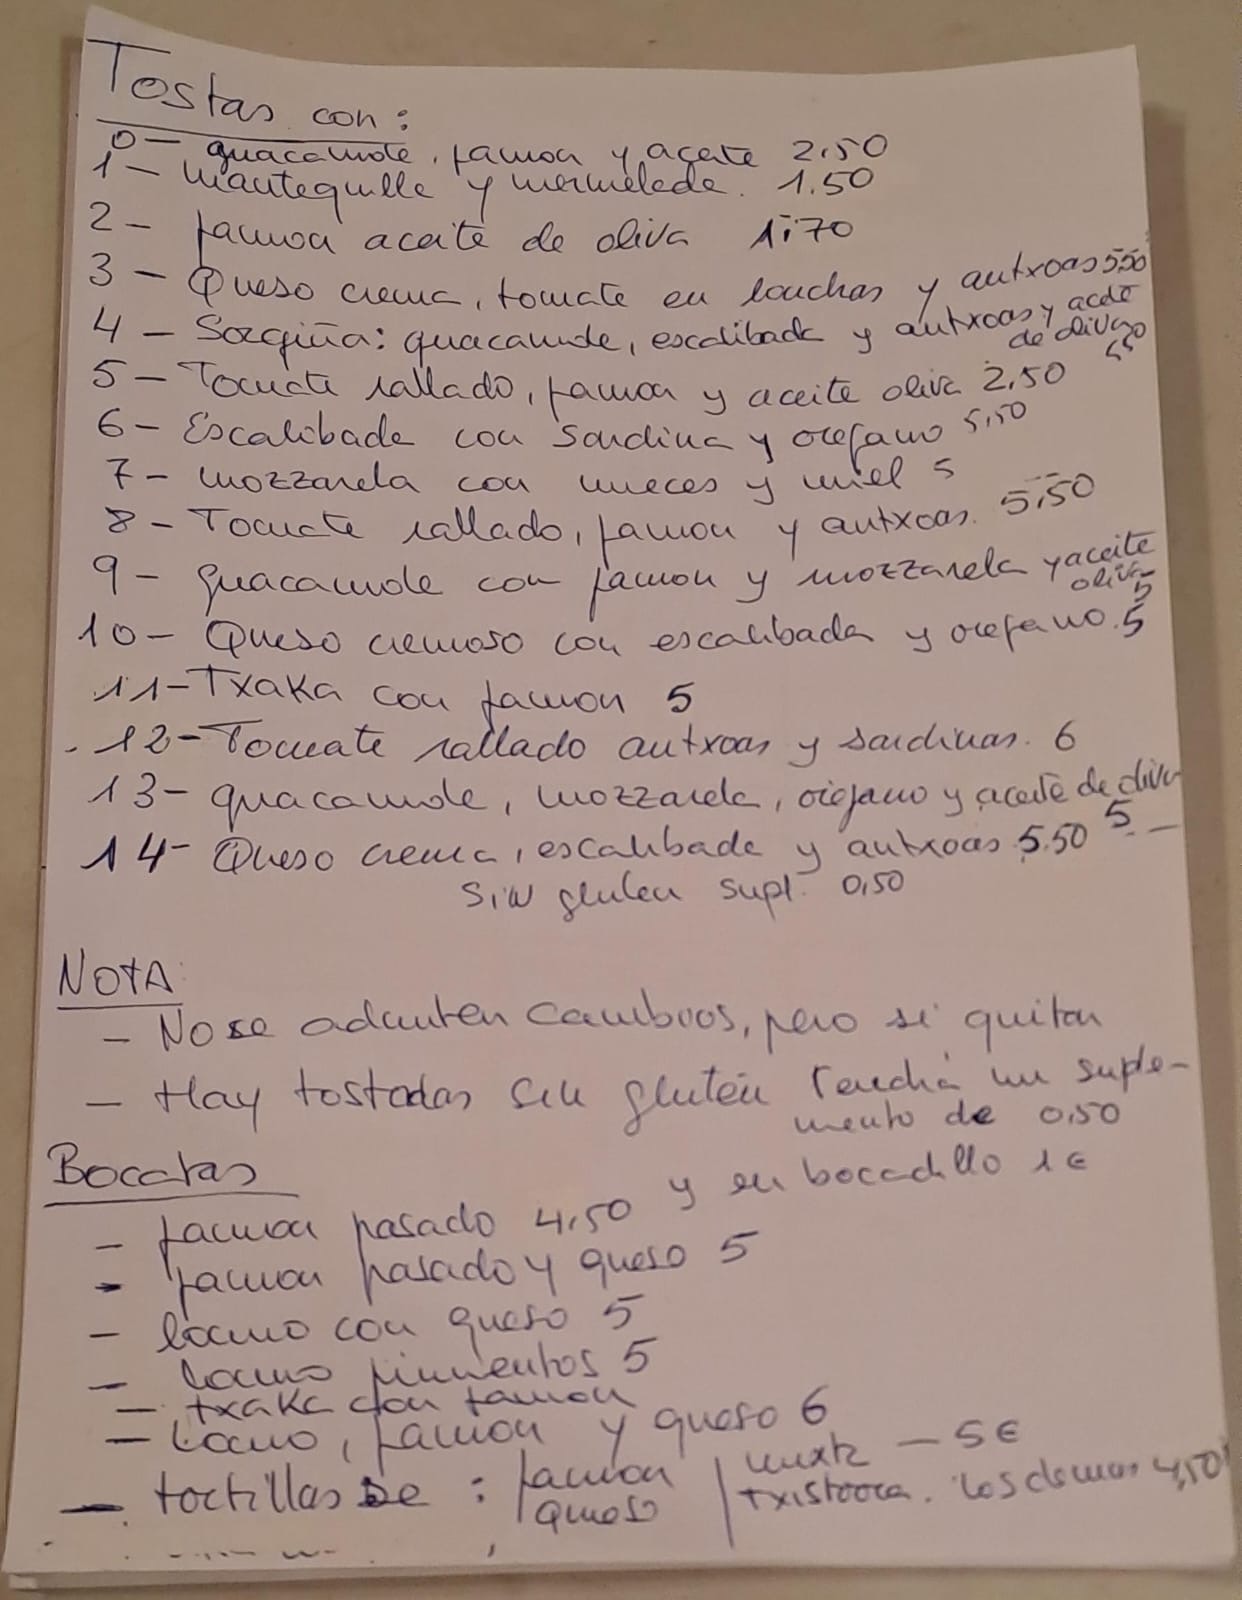 Tostas con:
0- guacamole, jamon y aceite 2,50
1- Mantequilla y mermelada. 1.50
2- jamon aceite de oliva 1,70
3- Queso crema, tomate en lonchas y antxoas 5,50
4- Sorgiña: guacamole, escalibada y antxoas y aceite
de oliva 5,50
5- Tomate rallado, jamon y aceite oliva 2,50
6- Escalibada con sardina y orefano 5,50
7- mozzarela con nueces y miel 5
8- Tomate rallado, jamon y antxoas. 5,50
9- guacamole con jamon y mozzarela y aceite
oliva 5
10- Queso cremoso con escalibada y orefano. 5
11- Txaka con jamon 5
12- Tomate rallado antxoas y sardinas. 6
13- guacamole, mozzarela, oregano y aceite de oliva
5
14- Queso crema, escalibada y antxoas 5.50
Sin gluten supl. 0,50
NOTA:
- No se admiten cambios, pero si quitar
- Hay tostadas sin gluten tendrá un suple-
mento de 0,50
y en bocadillo 1€
Bocatas
- jamon pasado 4,50
- jamon pasado y queso 5
- lomo con queso 5
- lomo pimientos 5
- txaka con jamon
- Lomo, jamon y queso 6
- tortillas de: jamon / mixta - 5€
queso / txistorra. los demas 4,50